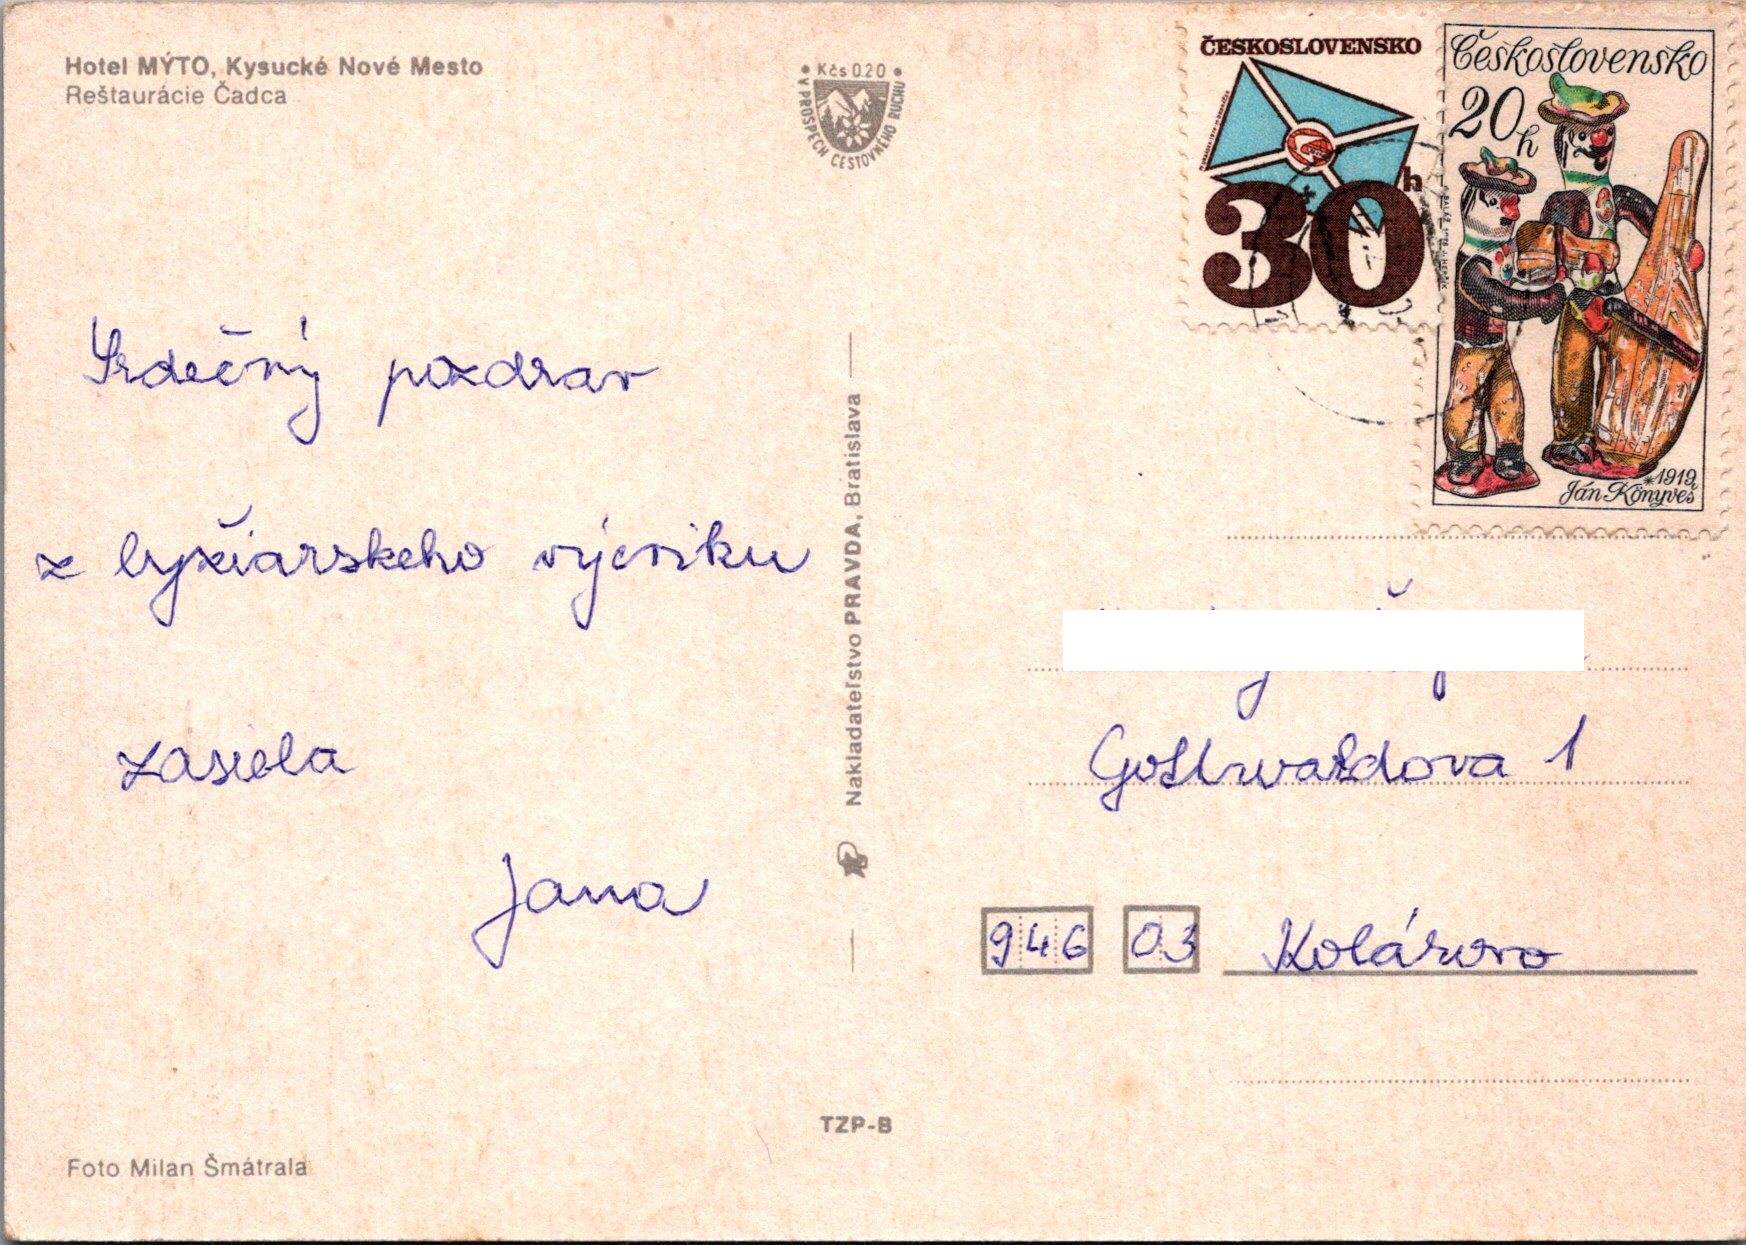 Hotel MÝTO, Kysucké Nové Mesto
Reštaurácie Čadca
Kčs 0.20
V PROSPECH CESTOVNÉHO RUCHU
ČESKOSLOVENSKO
30h
Československo
20h
*1919
Ján Könyveš
Srdečný pozdrav
z lyžiarskeho výcviku
zasiela
Jana
Nakladateľstvo PRAVDA, Bratislava
Gottwaldova 1
946 03 Kolárovo
TZP-B
Foto Milan Šmátrala